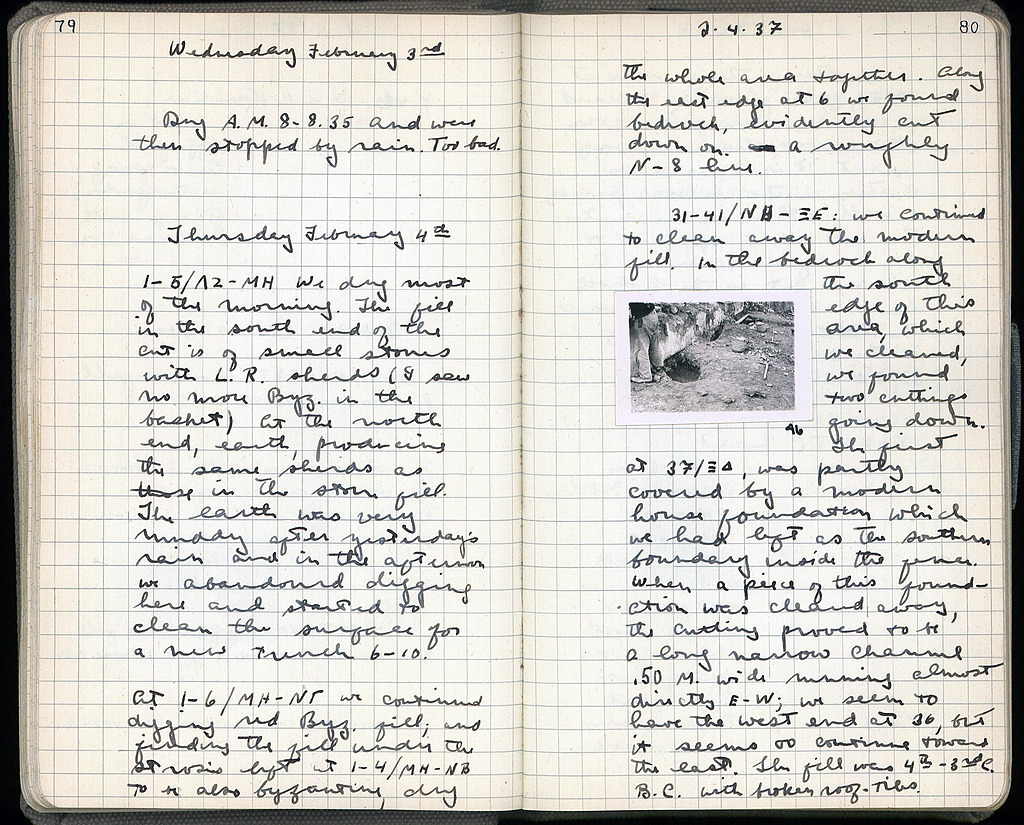 79
Wednesday February 3rd
Dug A.M. 8-8.35 and were
then stopped by rain. Too bad.
Thursday February 4th
1-5/Λ2-MH We dug most
of the morning. The fill
in the south end of the
cut is of small stones
with L.R. sherds (I saw
no more Byz. in the
basket) At the north
end, earth, producing
the same sherds as
those in the stone fill.
The earth was very
muddy after yesterday's
rain and in the afternoon
we abandoned digging
here and started to
clean the surface for
a new trench 6-10.
At 1-6/MH-NΓ we continued
digging red Byz. fill; and
finding the fill under the
strosis left at 1-4/MH-NB
to be also byzantine, dug
2.4.37
80
the whole area together. Along
the east edge at 6 we found
bedrock, evidently cut
down on a roughly
N-S line.
31-41/NB-ΞE: we continued
to clean away the modern
fill. In the bedrock along
the south
edge of this
area, which
we cleaned,
we found
two cuttings
going down.
The first
46
at 37/ΞΔ, was partly
covered by a modern
house foundation which
we had left as the southern
boundary inside the fence.
When a piece of this found-
ation was cleaned away,
the cutting proved to be
a long narrow channel
.50 M. wide running almost
directly E-W; we seem to
have the west end at 36, but
it seems to continue toward
the east. The fill was 4th-3rd C.
B.C. with broken roof-tiles.